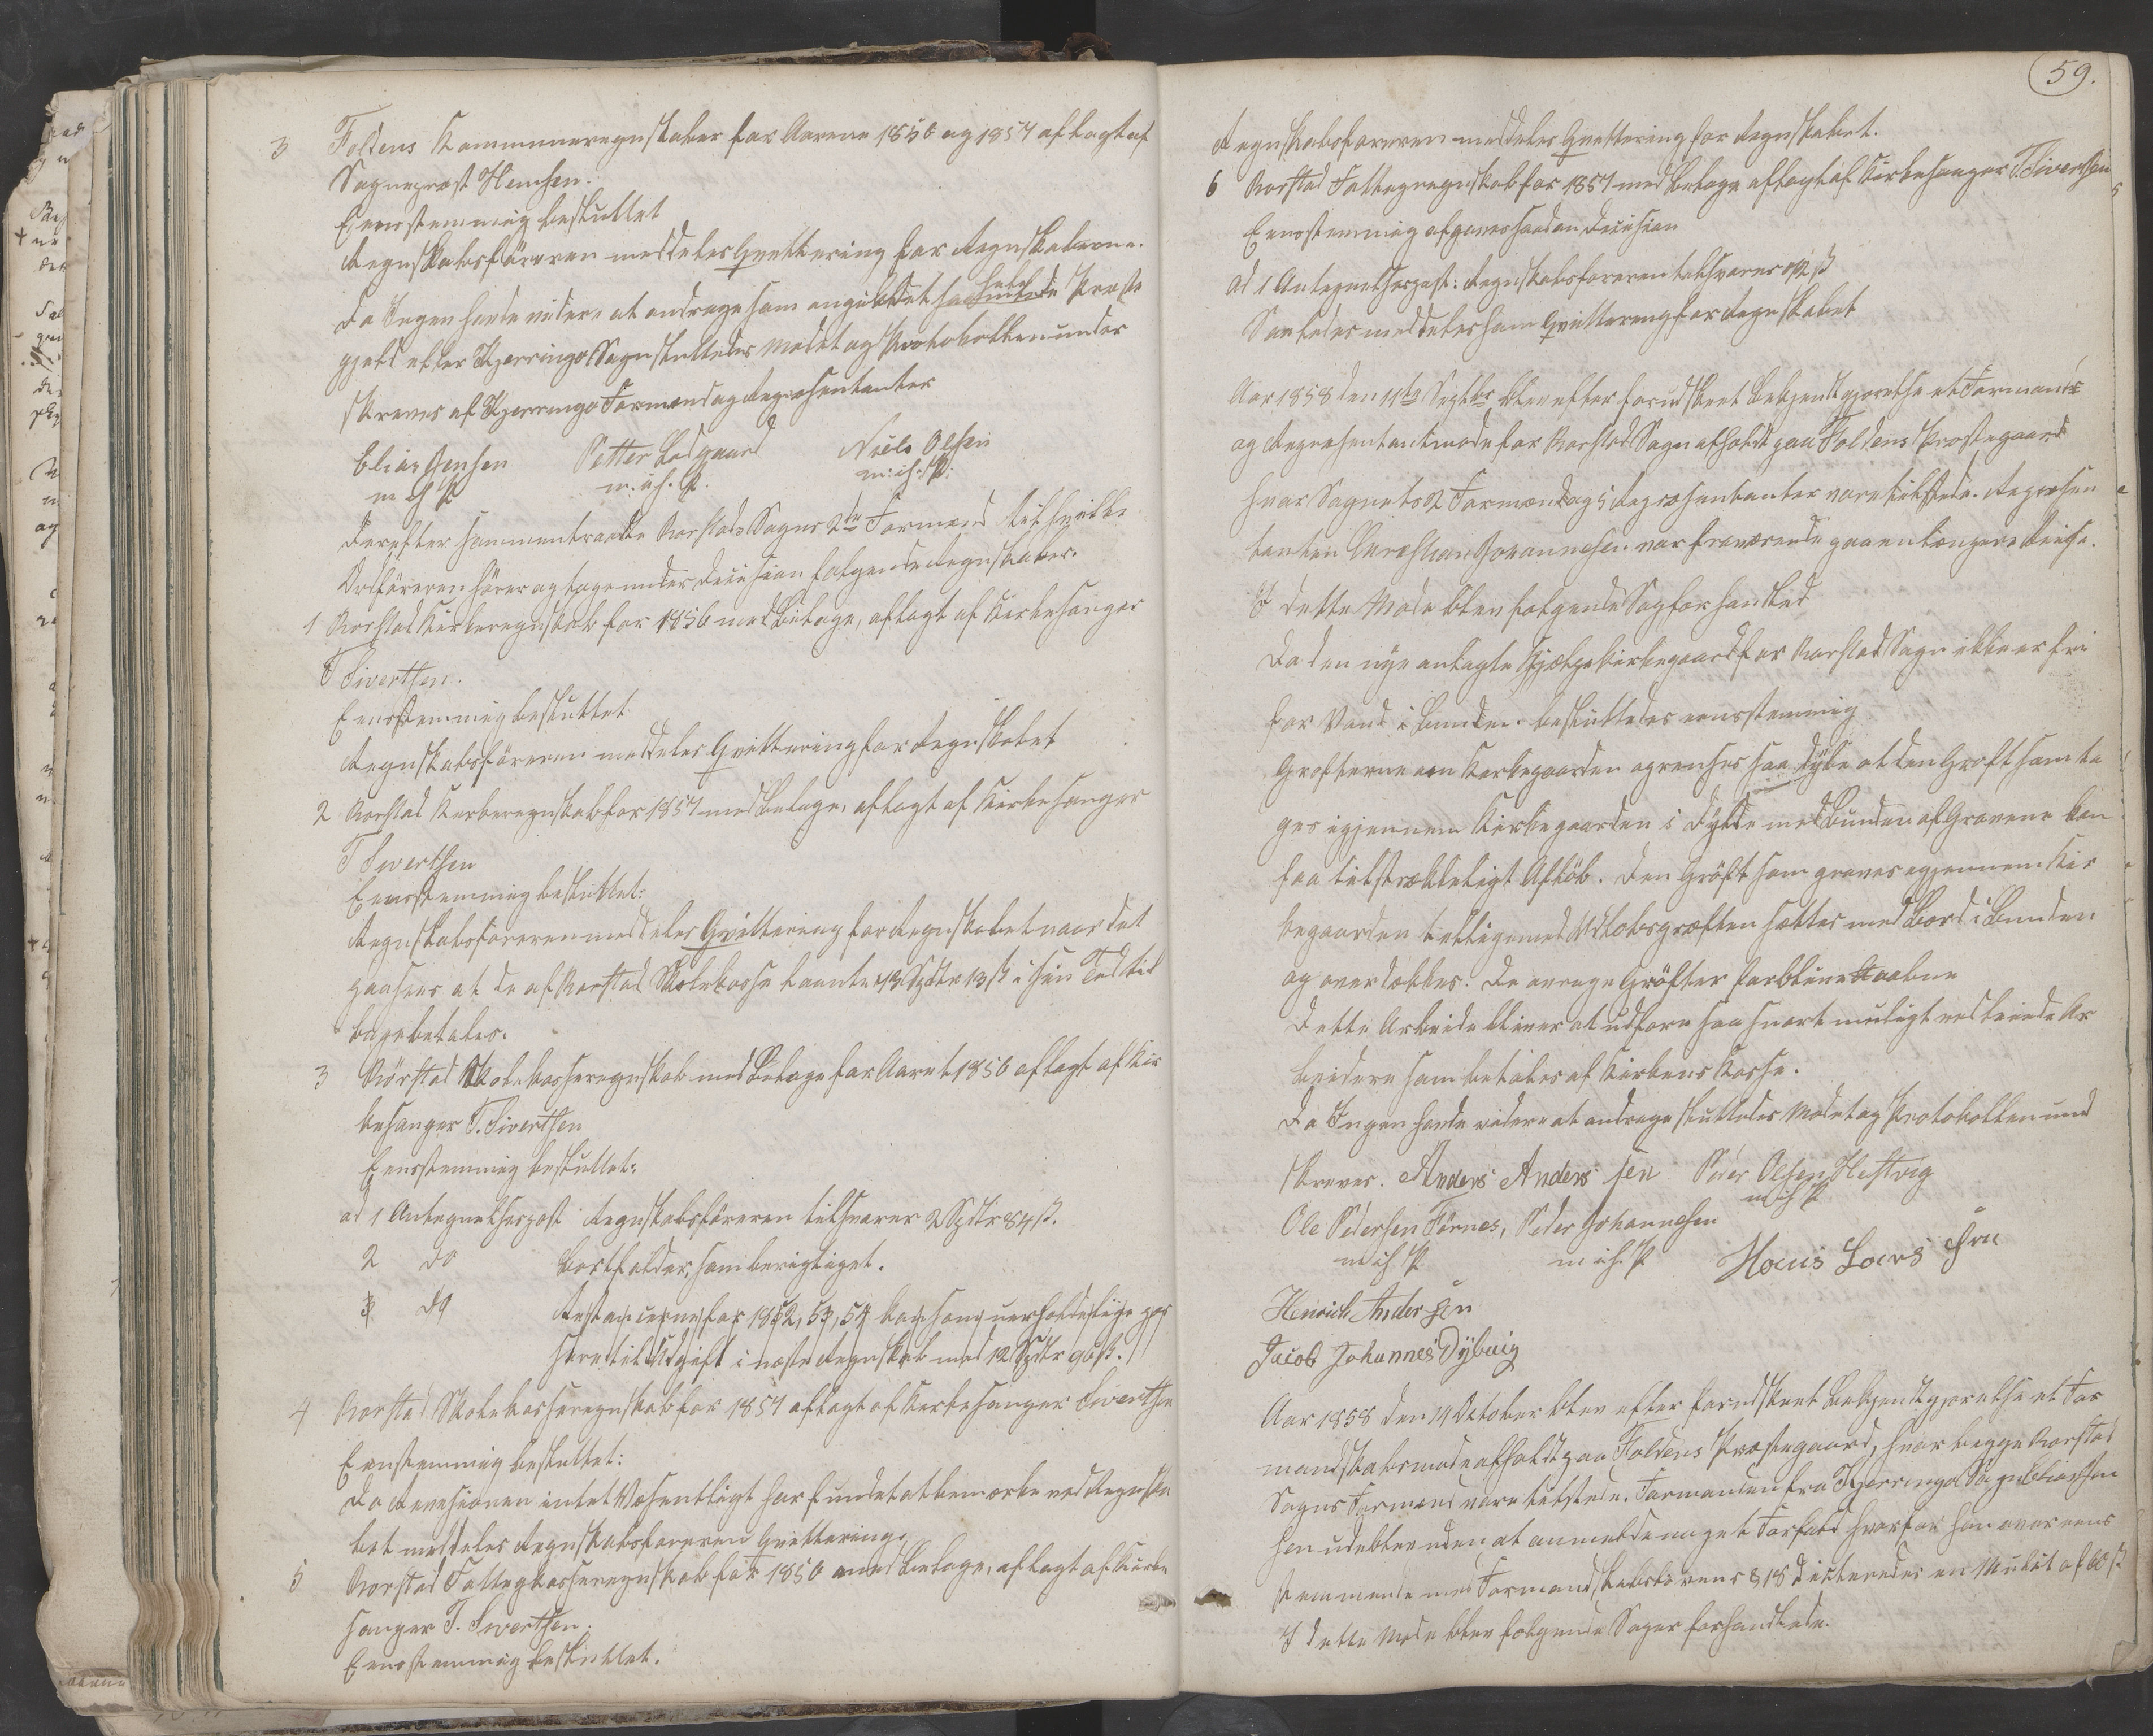 3 Foldens Kommuneregnskaber for Aarene 1856 og 1857 aflagt af
Sognepræst Hemsen.
Eenstemmig besluttet
Regnskabsføreren meddeles Qvittering for Regnskaberne.
Da Ingen havde videre at andrage som angik det hele Præste
gjeld eller Kjerringø Sogn sluttedes Mødet og Protokollen under
skreves af Kjerringø Formænd og Repræsentanter
Elias Jensen Petter Bodgaard Niels Olsen
m. i h. P. m. i h. P. m. i h. P.
Derefter sammentraadte Rørstad Sogns 2de Formænd
Ordføreren hører og toges under Decision følgende Regnskaber.
1 Rørstad Kirkeregnskab for 1856 med Bilage, aflagt af Kirkesanger
T Sivertsen.
Eenstemmig besluttet
Regnskabsføreren meddeles Qvittering for Regnskabet
2 Rørstad Kirkeregnskab for 1857 med Bilage, aflagt af Kirkesanger
T Sivertsen
Eenstemmig besluttet:
Regnskabsføreren meddeles Qvittering for Regnskabet naar det
paasees at de af Rørstad Skolekasse laante 13 Spdlr 13 ß i sin Tid til
bagebetales.
3 Rørstad Skolekasseregnskab med Bilage for Aaret 1856 aflagt af Kir
kesanger T. Sivertsen
Eenstemmig besluttet:
ad 1 Antegnelsespost Regnskabsføreren tilsvarer 2 Spdlr 84 ß.
2 do Bortfalder, som berigtiget.
3 do Restancerne for 1852, 53, 54 som uerholdelige
føres til Udgift i næste Regnskab med 12 Spdlr 96 ß.
4 Rørstad Skolekasseregnskab for 1857 aflagt af Kirkesanger Sivertsen
Eenstemmig besluttet:
Da Revisionen intet Væsentligt har fundet at bemærke ved Regnska
bet meddeles Regnskabsføreren Qvittering.
5 Rørstad Fattigkasseregnskab for 1856 med Bilage, aflagt af Kirke
sanger T. Sivertsen.
Eenstemmig besluttet.
59.
Regnskabsføreren meddeles Qvittering for Regnskabet.
6 Rørstad Fattigregnskab for 1857 med Bilage aflagt af Kirkesanger T. Sivertsen
Eenstemmig afgaves saadan Decision
ad 1 Antegnelsespost: Regnskabsføreren tilsvarer ß
Saaledes meddeles ham Qvittering for Regnskabet
Aar 1858 den 11te Septbr blev efter forudskeet Bekjendtgjørelse et Formands
og Repræsentantmøde for Rørstad Sogn afholdt paa Foldens Præstegaard
hvor Sognets 2 Formænd og 5 Repræsentanter vare tilstede. Repræsen
tanten Christian Johannesen var fraværende paa en længere Reise.
I dette Møde blev følgende Sag forhandlet
Da den nye anlagte Hjælpekirkegaard for Rørstad Sogn ikke er fri
for Vand i Bunden besluttedes eenstemmig
Grøfterne om Kirkegaarden oprenses saa dybe at den Grøft som ta
ges igjennem Kirkegaarden i Dybde med Bunden af Gravene kan
faa tilstrækkeligt Afløb. Den Grøft som graves igjennem Kir
kegaarden tilligemed Udløbsgrøften sættes med Bord i Bunden
og overdækkes. De øvrige Grøfter forblive aabne
Dette Arbeide bliver at udføre saa snart muligt ved leiede Ar
beidere som betales af Kirkens Kasse.
Da Ingen havde videre at andrage sluttedes Mødet og Protokollen und
skreves. Anders Anders sen Peder Olsen Hestvig
m i h P
Ole Pedersen Fornes, Peder Johannesen
m i h P m i h P Hans Lars sen
Henrich Andersen
Jacob Johannes Dybvig
Aar 1858 den 11 October blev efter forudskeet Bekjendtgjørelse et For
mandskabsmøde afholdt paa Foldens Præstegaard, hvor begge Rørstad
Sogns Formænd vare tilstede. Formanden fra Kjerringø Sogn Elias Jen
sen udeblev uden at anmelde noget Forfald hvorfor han overeens
stemmende med Formandskabslovens § 18 dicteredes en Mulct af 60 ß
I dette Møde blev følgende Sager forhandlede.